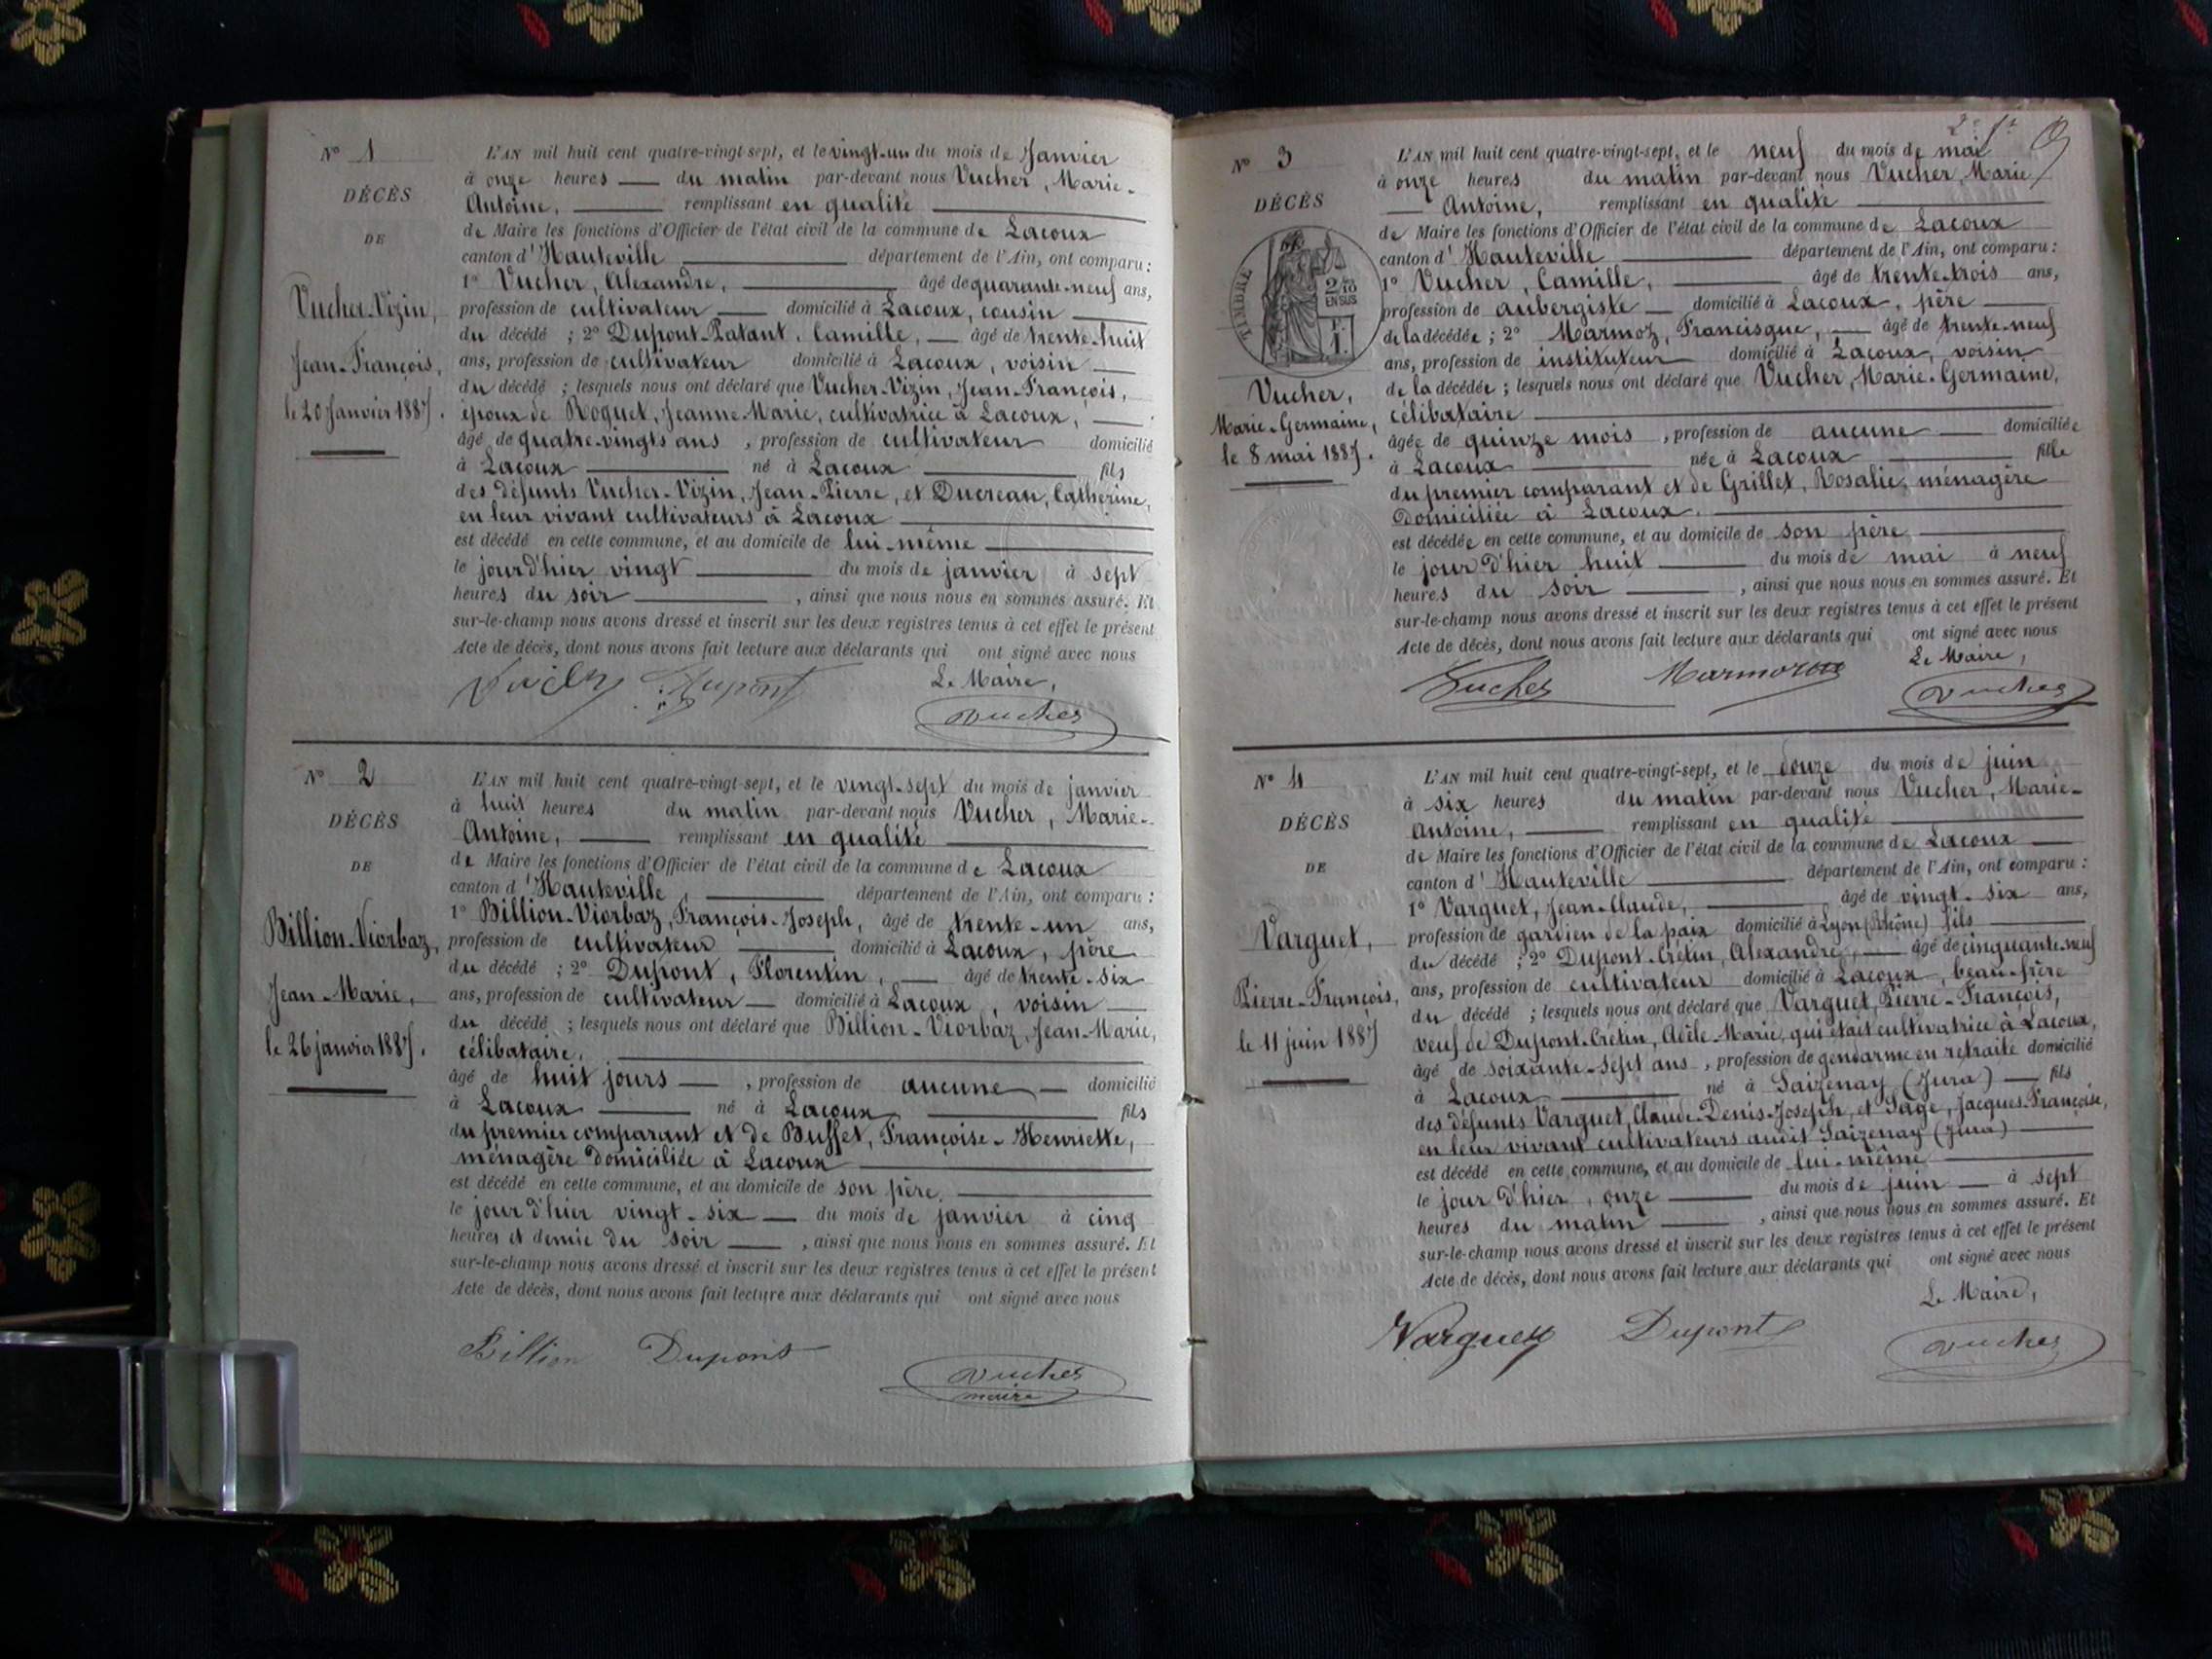 N° 1
DÉCÈS
DE
Vucher-Vizin,
Jean-François,
le 20 Janvier 1887.
L'AN mil huit cent quatre-vingt-sept, et le vingt-un du mois de Janvier
à onze heures du matin par-devant nous Vucher, Marie-
Antoine, remplissant en qualité
de Maire les fonctions d'Officier de l'état civil de la commune de Lacoux
canton d'Hauteville département de l'Ain, ont comparu :
1° Vucher, Alexandre, âgé de quarante-neuf ans,
profession de cultivateur domicilié à Lacoux, cousin
du décédé ; 2° Dupont-Patant, Camille, âgé de trente-huit
ans, profession de cultivateur domicilié à Lacoux, voisin
du décédé ; lesquels nous ont déclaré que Vucher-Vizin, Jean-François,
époux de Roguet, Jeanne-Marie, cultivatrice à Lacoux,
âgé de quatre-vingts ans, profession de cultivateur domicilié
à Lacoux né à Lacoux fils
des défunts Vucher-Vizin, Jean-Pierre, et Ducreau, Catherine,
en leur vivant cultivateurs à Lacoux
est décédé en cette commune, et au domicile de lui-même
le jour d'hier vingt du mois de janvier à sept
heures du soir, ainsi que nous nous en sommes assuré. Et
sur-le-champ nous avons dressé et inscrit sur les deux registres tenus à cet effet le présent
Acte de décès, dont nous avons fait lecture aux déclarants qui ont signé avec nous
Le Maire,
Dupont
Vucher
N° 2
DÉCÈS
DE
Billion-Viorbaz,
Jean-Marie,
le 26 janvier 1887.
L'AN mil huit cent quatre-vingt-sept, et le vingt-sept du mois de janvier
à huit heures du matin par-devant nous Vucher, Marie-
Antoine, remplissant en qualité
de Maire les fonctions d'Officier de l'état civil de la commune de Lacoux
canton d'Hauteville, département de l'Ain, ont comparu :
1° Billion-Viorbaz, François-Joseph, âgé de trente-un ans,
profession de cultivateur domicilié à Lacoux, père
du décédé ; 2° Dupont, Florentin, âgé de trente-six
ans, profession de cultivateur domicilié à Lacoux, voisin
du décédé ; lesquels nous ont déclaré que Billion-Viorbaz, Jean-Marie,
célibataire,
âgé de huit jours, profession de aucune domicilié
à Lacoux né à Lacoux fils
du premier comparant et de Buffet, Françoise-Henriette,
ménagère domiciliée à Lacoux
est décédé en cette commune, et au domicile de son père,
le jour d'hier vingt-six du mois de janvier à cinq
heures et demie du soir, ainsi que nous nous en sommes assuré. Et
sur-le-champ nous avons dressé et inscrit sur les deux registres tenus à cet effet le présent
Acte de décès, dont nous avons fait lecture aux déclarants qui ont signé avec nous
Billion Dupont
Vucher
maire
N° 3
DÉCÈS
TIMBRE
2/10
EN SUS
Vucher,
Marie-Germaine,
le 8 mai 1887.
L'AN mil huit cent quatre-vingt-sept, et le neuf du mois de mai
à onze heures du matin par-devant nous Vucher, Marie
Antoine, remplissant en qualité
de Maire les fonctions d'Officier de l'état civil de la commune de Lacoux
canton d'Hauteville département de l'Ain, ont comparu :
1° Vucher, Camille, âgé de trente-trois ans,
profession de aubergiste domicilié à Lacoux, père
de la décédée ; 2° Marmoz, Francisque, âgé de trente-neuf
ans, profession de instituteur domicilié à Lacoux, voisin
de la décédée ; lesquels nous ont déclaré que Vucher, Marie-Germaine,
célibataire
âgée de quinze mois, profession de aucune domiciliée
à Lacoux née à Lacoux fille
du premier comparant et de Grillet, Rosalie, ménagère
domiciliée à Lacoux.
est décédée en cette commune, et au domicile de son père
le jour d'hier huit du mois de mai à neuf
heures du soir, ainsi que nous nous en sommes assuré. Et
sur-le-champ nous avons dressé et inscrit sur les deux registres tenus à cet effet le présent
Acte de décès, dont nous avons fait lecture aux déclarants qui ont signé avec nous
Le Maire,
Vucher
Vucher
N° 4
DÉCÈS
DE
Varguet,
Pierre-François,
le 11 juin 1887
L'AN mil huit cent quatre-vingt-sept, et le douze du mois de juin
à six heures du matin par-devant nous Vucher, Marie-
Antoine, remplissant en qualité
de Maire les fonctions d'Officier de l'état civil de la commune de Lacoux
canton d'Hauteville département de l'Ain, ont comparu :
1° Varguet, Jean-Claude, âgé de vingt-six ans,
profession de gardien de la paix domicilié à Lyon (Rhône) fils
du décédé ; 2° Dupont-Crétin, Alexandre, âgé de cinquante-neuf
ans, profession de cultivateur domicilié à Lacoux, beau-frère
du décédé ; lesquels nous ont déclaré que Varguet, Pierre-François,
veuf de Dupont-Crétin, Adèle-Marie, qui était cultivatrice à Lacoux,
âgé de soixante-sept ans, profession de gendarme en retraite domicilié
à Lacoux né à Saizenay (Jura) fils
des défunts Varguet, Claude-Denis-Joseph, et Sage, Jacques-Françoise,
en leur vivant cultivateurs audit Saizenay (Jura)
est décédé en cette commune, et au domicile de lui-même
le jour d'hier, onze du mois de juin à sept
heures du matin, ainsi que nous nous en sommes assuré. Et
sur-le-champ nous avons dressé et inscrit sur les deux registres tenus à cet effet le présent
Acte de décès, dont nous avons fait lecture aux déclarants qui ont signé avec nous
Le Maire,
Varguet Dupont
Vucher